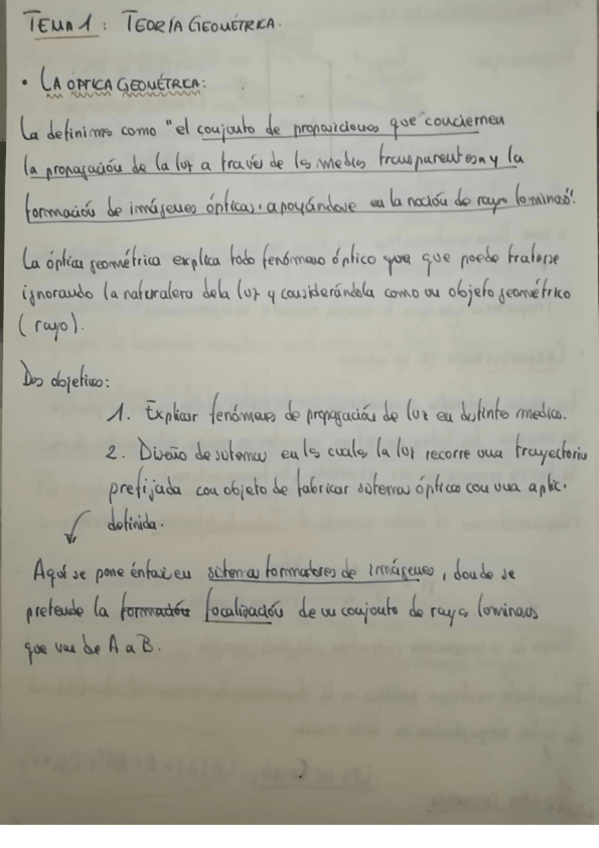 TEMA 1: TEORÍA GEOMÉTRICA.
• LA ÓPTICA GEOMÉTRICA:
La definimos como "el conjunto de proposiciones que conciernen
la propagación de la luz a través de los medios transparentes y la
formación de imágenes ópticas, apoyándose en la noción de rayo luminoso".
La óptica geométrica explica todo fenómeno óptico que puede tratarse
ignorando la naturaleza de la luz y considerándola como un objeto geométrico
(rayo).
Dos objetivos:
1. Explicar fenómenos de propagación de luz en distintos medios.
2. Diseño de sistemas en los cuales la luz recorre una trayectoria
prefijada con objeto de fabricar sistemas ópticos con una aplic.
definida.
Aquí se pone énfasis en sistemas formadores de imágenes, donde se
pretende la formación focalización de un conjunto de rayos luminosos
que van de A a B.